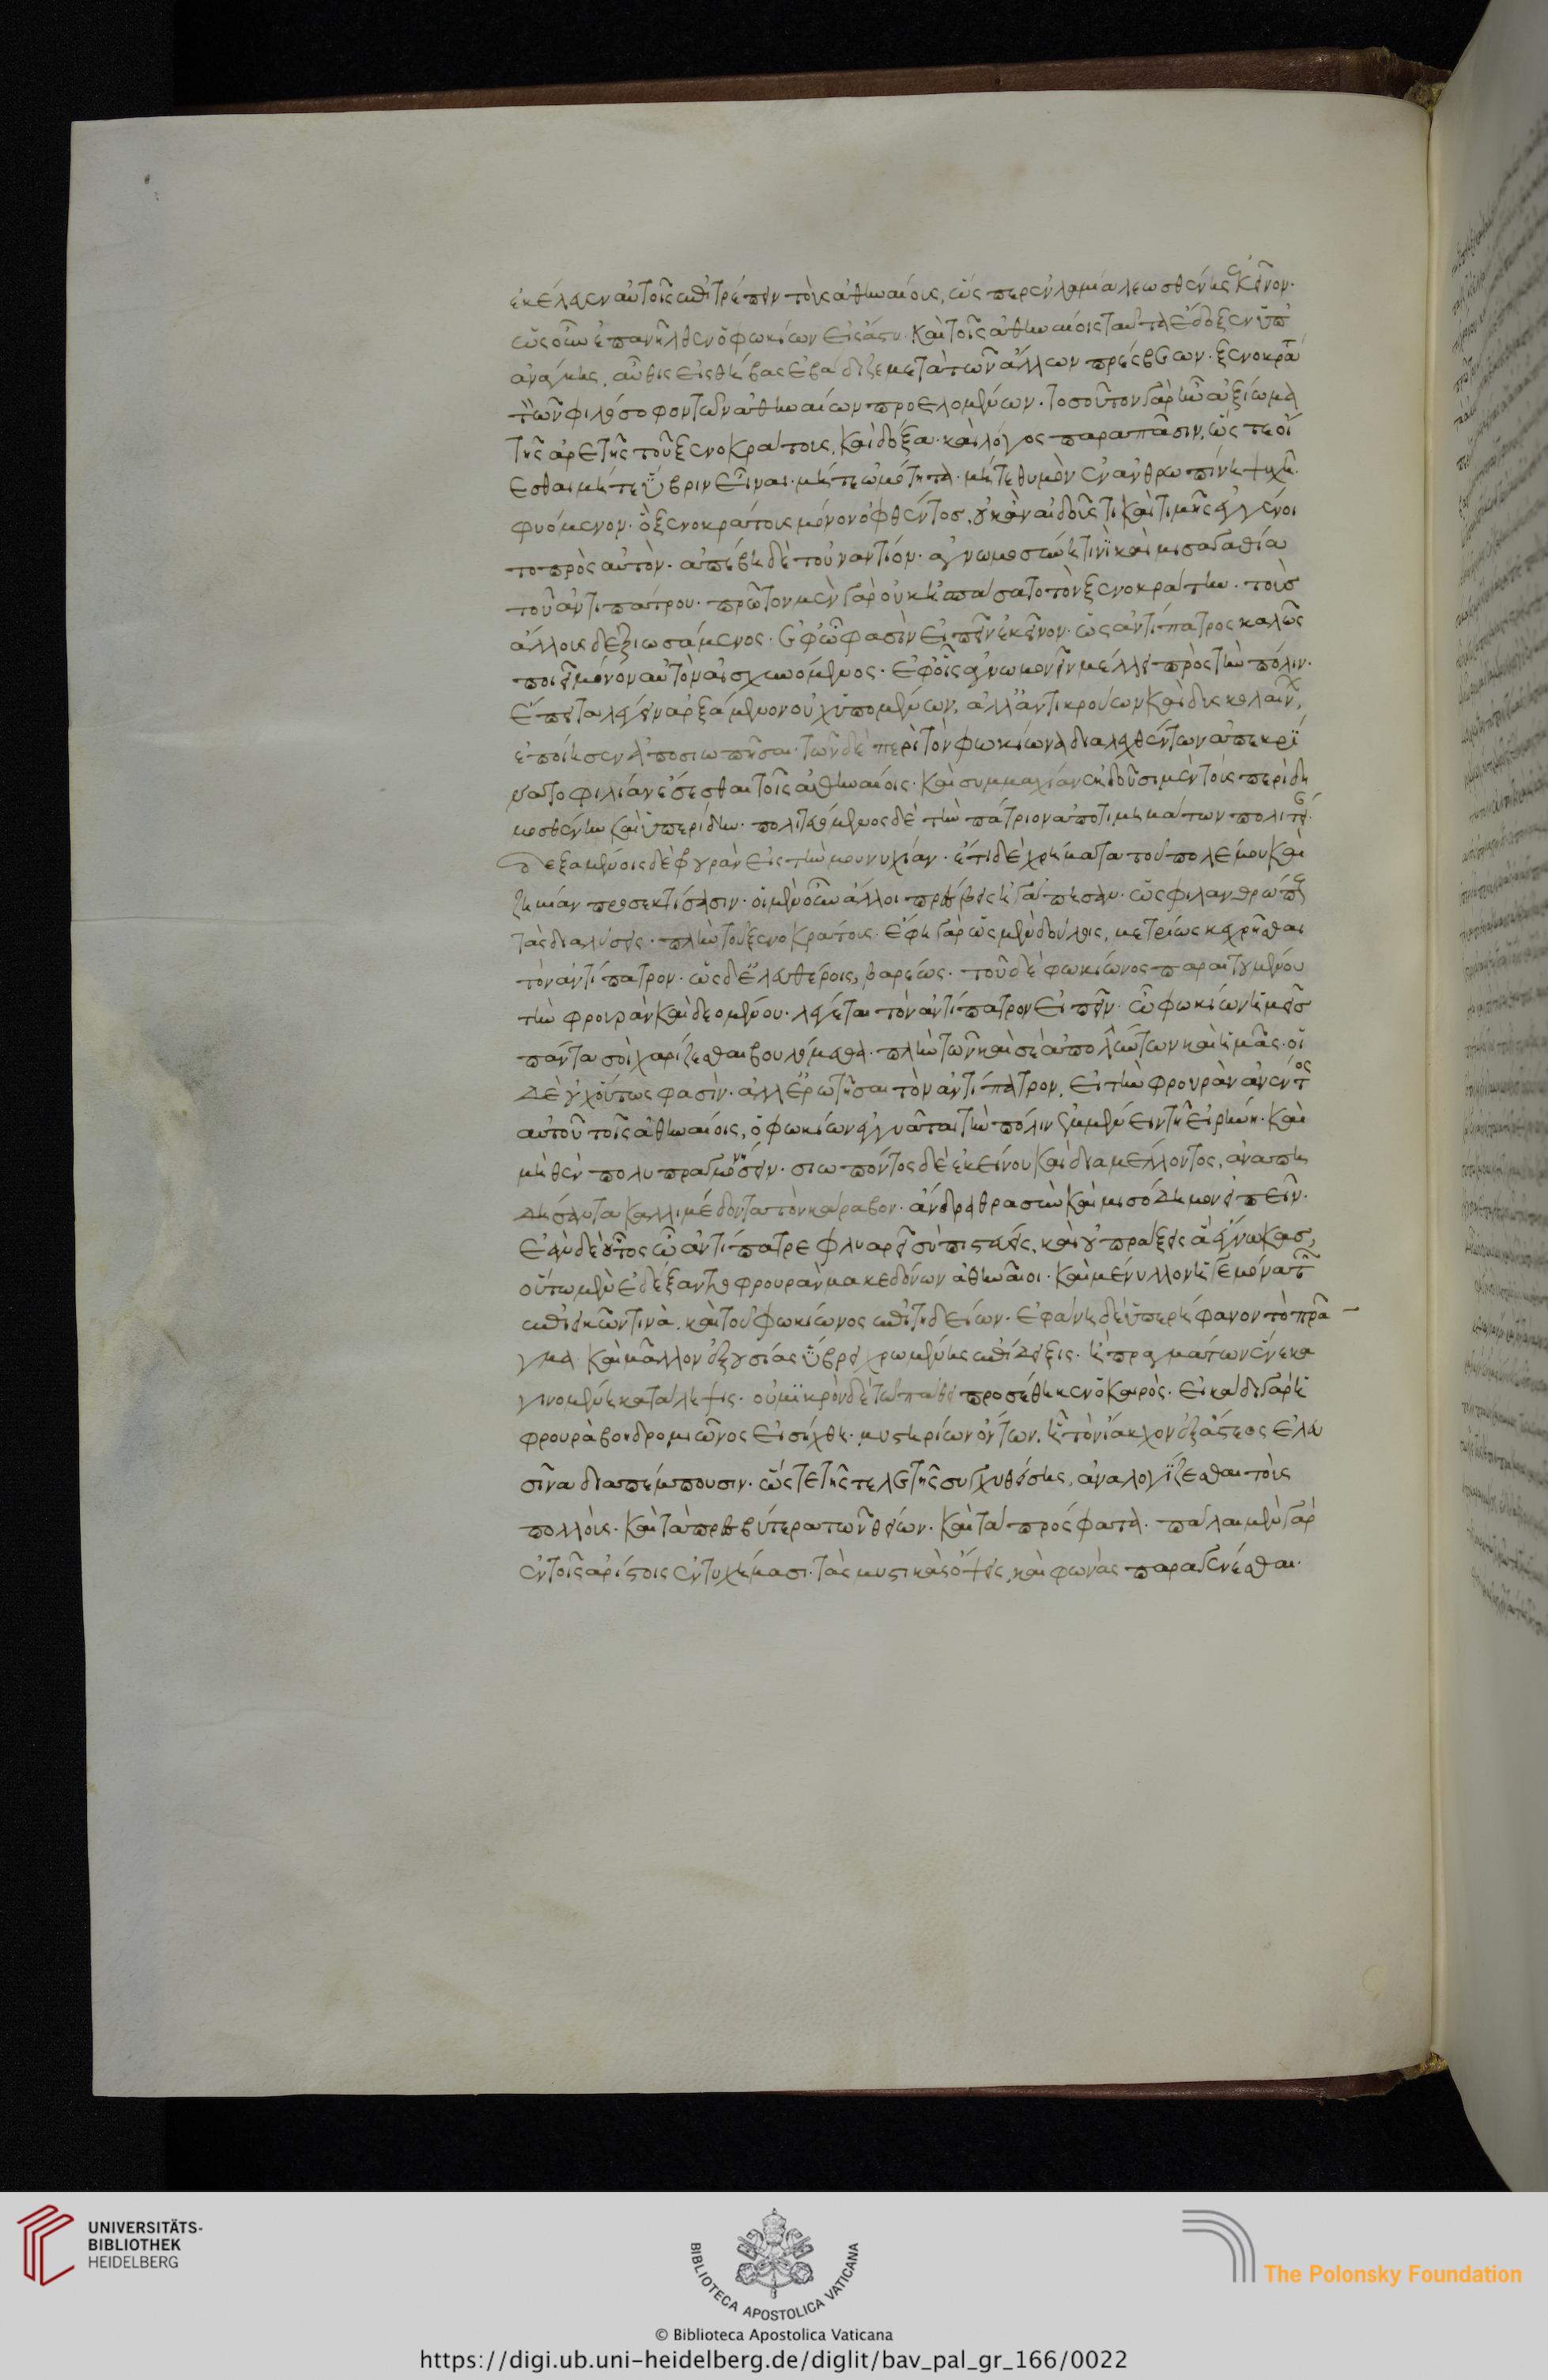 ἐκέλευεν αὐτοῖς ἐπιτρέπειν τοὺς ἀθηναίους, ὥς περ ἐν λαμία λεωσθένης ἐκεῖνον·
ὡς οὖν ἐπανῆλθεν ὁ φωκίων εἰς ἄστυ· καὶ τοῖς ἀθηναίοις ταῦτα ἔδοξεν ὑπ
ἀνάγκης, αὖθις εἰς θήβας ἐβάδιζε μετὰ τῶν ἄλλων πρέσβεων· ξενοκρατ
τὸν φιλόσοφον τῶν ἀθηναίων προελομένων· τοσοῦτον γὰρ ἦν ἀξίωμα
τῆς ἀρετῆς τοῦ ξενοκράτους, καὶ δόξα· καὶ λόγος παρα πᾶσιν, ὥς τε οἴ
εσθαι μήτε ὕβριν εἶναι· μήτε ὠμότητα· μήτε θυμὸν ἐν ἀνθρωπίνη ψυχῆ
φυόμενον· ὃ ξενοκράτους μόνον ὀφθέντος, οὐκ ἂν αἰδοῦς τι καὶ τιμῆς ἐγγένοι
το πρὸς αὐτὸν· ἀπέβη δὲ τοὐναντίον· ἀγνωμοσύνη τινὶ καὶ μισαγαθία
τοῦ ἀντιπάτρου· πρῶτον μὲν γὰρ οὐκ ἠσπάσατο τὸν ξενοκράτην· τοὺς
ἄλλους δεξιωσάμενος· ἐφ ὧ φασὶν εἰπεῖν ἐκεῖνον· ὡς ἀντίπατρος καλῶς
ποιεῖ μόνον αὐτὸν αἰσχυνόμενος· ἐφ οἷς ἀγνωμονεῖν μέλλει πρὸς τὴν πόλιν·
ἔπειτα λέγειν ἀρξάμενον οὐχ ὑπομένων, ἀλλ ἀντικρούων καὶ δυσκολαίν,
ἐποίησεν ἀποσιωπῆσαι· τῶν δὲ περὶ τὸν φωκίωνα διαλεχθέντων ἀπεκρί
νατο φιλίαν ἔσεσθαι τοῖς ἀθηναίοις· καὶ συμμαχίαν ἐκδοῦσι μὲν τοὺς περὶ δη
μοσθένην καὶ ὑπερίδην· πολιτευόμενος δὲ τὴν πάτριον ἀπο τιμημάτων πολιτεί
δεξαμένοις δὲ φρουρὰν εἰς τὴν μουνυχίαν· ἔτι δὲ χρήματα τοῦ πολέμου καὶ
ζημίαν προσεκτίσασιν· οἱ μὲν οὖν ἄλλοι πρέσβεις ἠγάπησαν· ὡς φιλανθρώπους
τὰς διαλύσεις· πλὴν τοῦ ξενοκράτους· ἔφη γὰρ ὡς μὲν δούλοις, μετρίως κεχρῆσθαι
τὸν ἀντίπατρον· ὡς δὲ ἐλευθέροις, βαρέως· τοῦ δὲ φωκίωνος παραιτουμένου
τὴν φρουρὰν καὶ δεομένου· λέγεται τὸν ἀντίπατρον εἰπεῖν· ὦ φωκίων ἡμεῖς
πάντα σοὶ χαρίζεσθαι βουλόμεθα· πλὴν τῶν καὶ σὲ ἀπολούντων καὶ ἡμᾶς· οἱ
δὲ οὐχ οὕτως φασὶν· ἀλλ ἐρωτῆσαι τὸν ἀντίπατρον, εἰ τὴν φρουρὰν ἀνέντος
αὐτοῦ τοῖς ἀθηναίοις, ὁ φωκίων ἐγγυᾶται τὴν πόλιν ἐμμένειν τῆ εἰρήνη· καὶ
μηθὲν πολυπραγμονήσειν· σιωπόντος δὲ ἐκείνου καὶ διαμέλλοντος, ἀναπη
δήσαντα καλλιμέδοντα τὸν κάραβον· ἄνδρα θρασὺν καὶ μισόδημον εἰπεῖν·
ἐὰν δὲ οὗτος ὦ ἀντίπατρε φλυαρεῖ σὺ πιστεύεις, καὶ οὐ πράξεις ἃ ἔγνωκας,
οὕτω μὲν ἐδέξαντο φρουρὰν μακεδόνων ἀθηναῖοι· καὶ μένυλλον ἡγεμόνα τ
ἐπιεικῶν τινὰ, καὶ τοῦ φωκίωνος ἐπιτηδείων· ἐφάνη δὲ ὑπερήφανον τὸ πρᾶ
γμα· καὶ μᾶλλον ἐξουσίας ὕβρει χρωμένης ἐπίδειξις· ἢ πραγμάτων ἕνεκα
γινομένη κατάληψις· οὐ μικρὸν δὲ τῶ πάθει προσέθηκεν ὁ καιρός· εἰκάδι γὰρ ἡ
φρουρὰ βοηδρομιῶνος εἰσήχθη· μυστηρίων ὄντων, ἧ τὸν ἴακχον ἐξ ἄστεος ἐλευ
σῖνα διαπέμπουσιν· ὥς τε τῆς τελετῆς συγχυθείσης, ἀναλογίζεσθαι τοὺς
πολλούς· καὶ τὰ πρεσβύτερα τῶν θείων· καὶ τὰ πρόσφατα· πάλαι μὲν γὰρ
ἐν τοῖς ἀρίστοις εὐτυχήμασι· τὰς μυστικὰς ὄψεις, καὶ φωνὰς παραγενέσθαι·
UNIVERSITÄTS-
BIBLIOTHEK
HEIDELBERG
BIBLIOTECA APOSTOLICA VATICANA
The Polonsky Foundation
© Biblioteca Apostolica Vaticana
https://digi.ub.uni-heidelberg.de/diglit/bav_pal_gr_166/0022